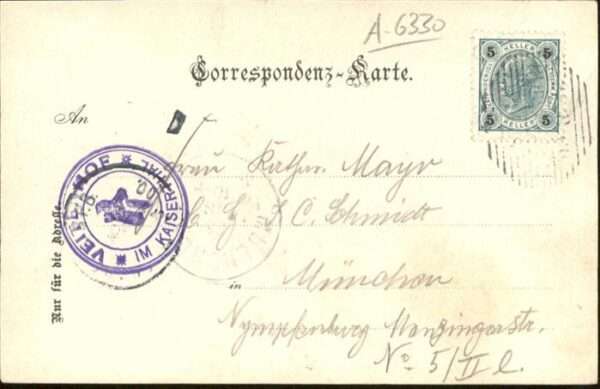 A-6330
5 HELLER 5
5 HELLER 5
Correspondenz-Karte.
An
Frau Kathar. Mayr
G. & C. Schmidt
VEITENHOF * IM KAISERTHAL *
in München
Nymphenburg Menzingerstr.
No 5/II l.
Nur für die Adresse.